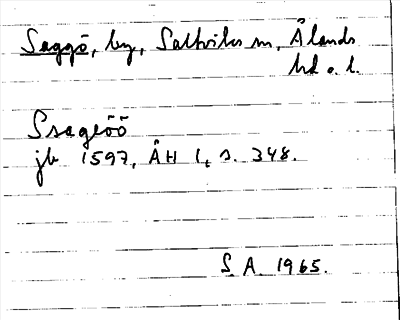 Saggö, by, Saltviks sn, Ålands
hd o. l.
Ssageöö
jb 1597, ÅH 1, s. 348.
S A 1965.